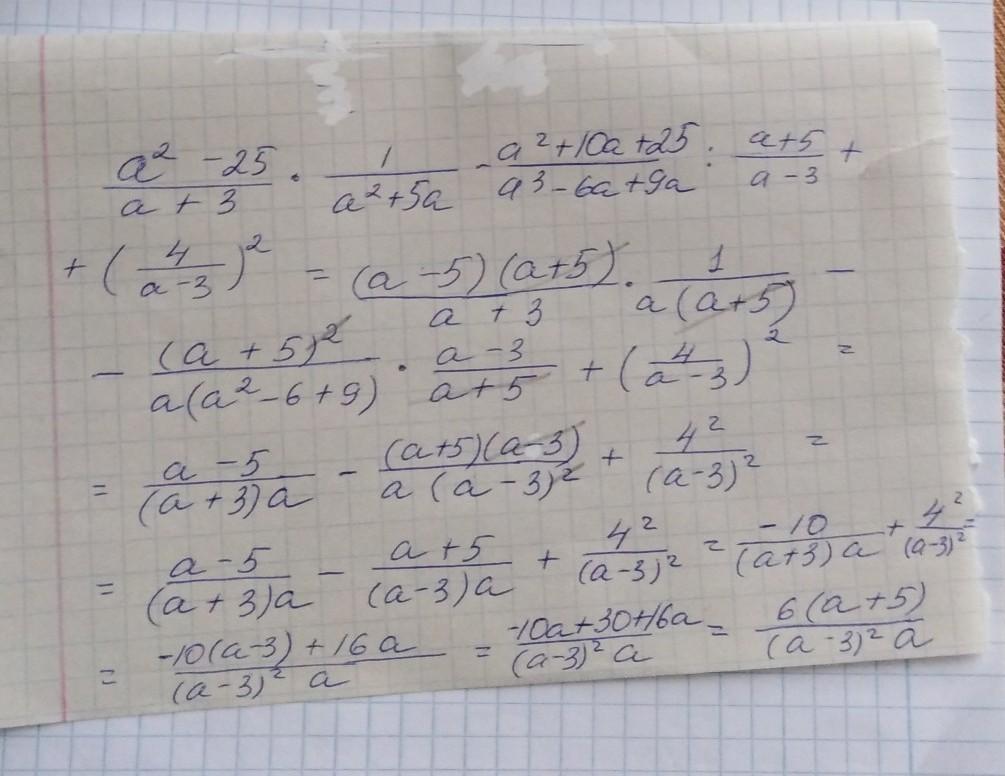 (a² - 25)/(a + 3) · 1/(a² + 5a) - (a² + 10a + 25)/(a³ - 6a + 9a) : (a + 5)/(a - 3) +
+ (4/(a - 3))² = ((a - 5)(a + 5))/(a + 3) · 1/(a(a + 5)) -
- (a + 5)²/(a(a² - 6 + 9)) · (a - 3)/(a + 5) + (4/(a - 3))² =
= (a - 5)/((a + 3)a) - ((a + 5)(a - 3))/(a(a - 3)²) + 4²/(a - 3)² =
= (a - 5)/((a + 3)a) - (a + 5)/((a - 3)a) + 4²/(a - 3)² = -10/((a + 3)a) + 4²/(a - 3)² =
= (-10(a - 3) + 16a)/((a - 3)² a) = (-10a + 30 + 16a)/((a - 3)² a) = (6(a + 5))/((a - 3)² a)